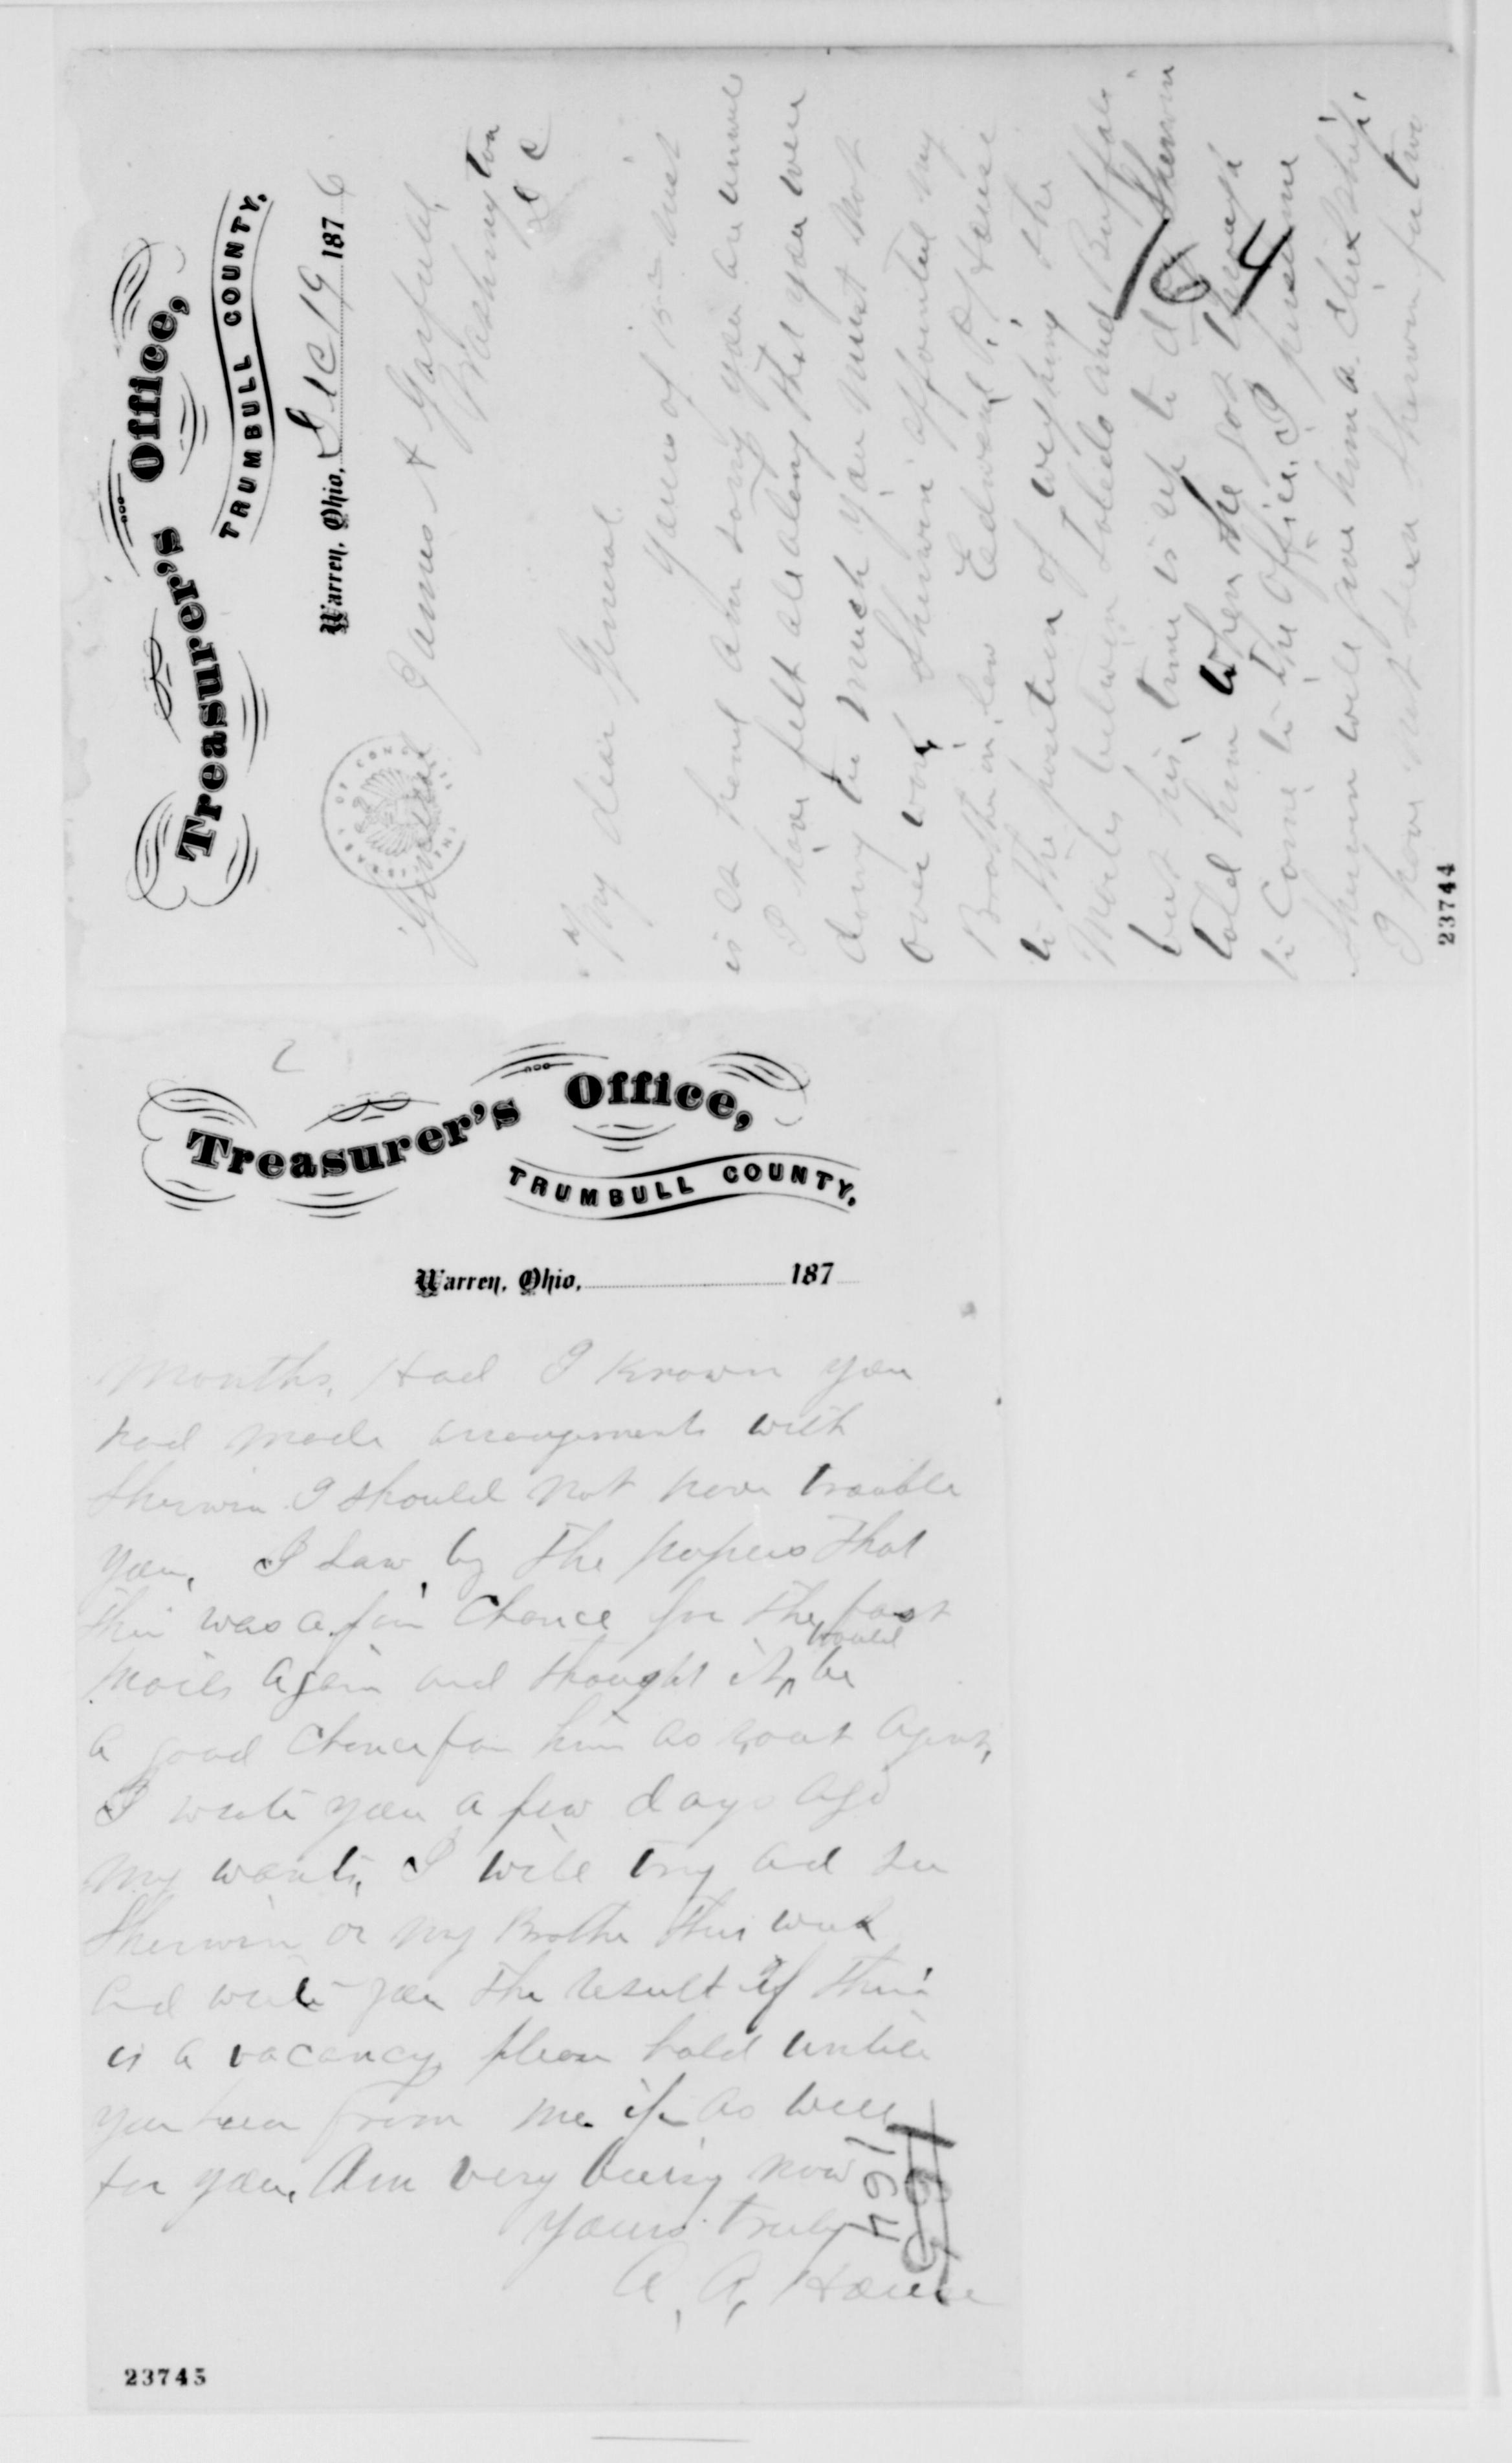 Treasurer's Office,
TRUMBULL COUNTY,
Warren, Ohio, Dec 19 1876
General James A Garfield,
Washington
D C
My dear General
Yours of 15th inst
is at hand am sorry you are unwell
I have felt all along that you were
doing to much you must not
over work, Sherwin appointed my
Brother in, law Edward P. House
to the position of weighing the
Mails between Toledo and Buffalo
but his, time is up to d Sherwin
told him when he got through
to Come to the Office, I presume
Sherwin will give him a Clerkship,
I have not seen Sherwin for two
164
23744
2
Treasurer's Office,
TRUMBULL COUNTY,
Warren, Ohio, 187
Months, Had I Known you
had made arrangements with
Sherwin I should not have trouble
you, I saw, by the papers that
thir was a fair Chance for the fast
mails again and thought it would be
a good Chance for him as rout Agent,
I wrote you a few days ago
my wants, I will try and see
Sherwin or my Brother this week
and write you the result if thire
is a vacancy please hold untill
you hear from me if as well
for you, Am very buisy now
Yours truly
A, A, House
164
23745